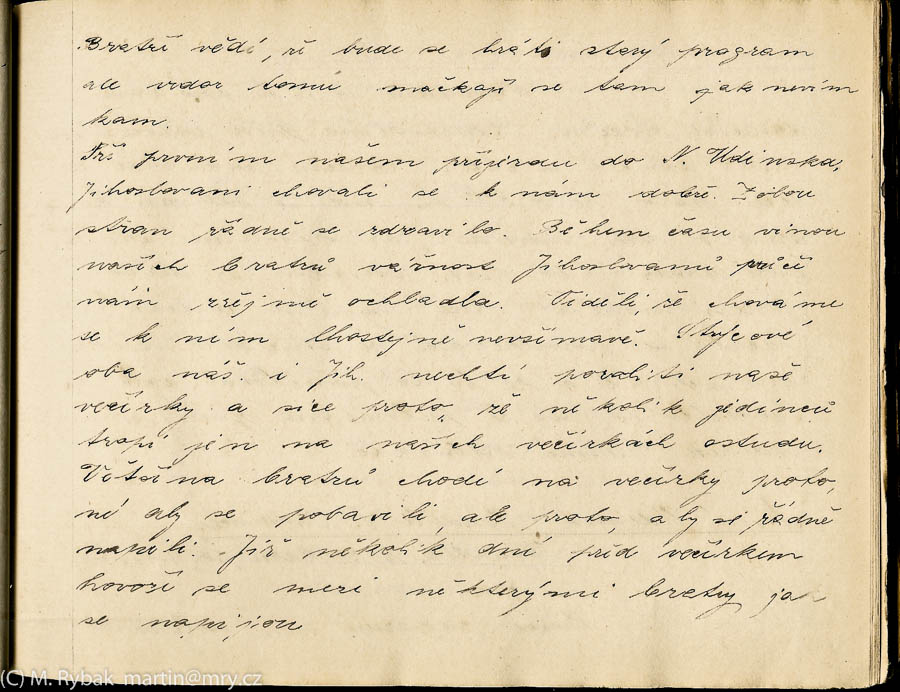 Bratři vědí, že bude se hráti starý program
ale vzdor tomu mačkají se tam jak nevím
kam
Při prvním našem příjezdu do N. Udinska,
Jihoslovani chovali se k nám dobře. Z obou
stran řádně se zdravilo. Během času vinou
našich bratrů vážnost Jihoslovanů průči
nám zřejmě ochladla. Viděli, že chováme
se k ním lhostejně nevšímavě. Strýcové
oba náš. i Jih. nechtí povoliti naše
večírky a sice proto, že několik jedinců
tropí jen na našich večírkách ostudu.
Většina bratrů chodí na večírky proto,
né aby se pobavili, ale proto, aby se řádně
napili. Již několik dní před večírkem
hovoří se mezi některými bratry ja
se napijou
(C) M. Rybak martin@mry.cz